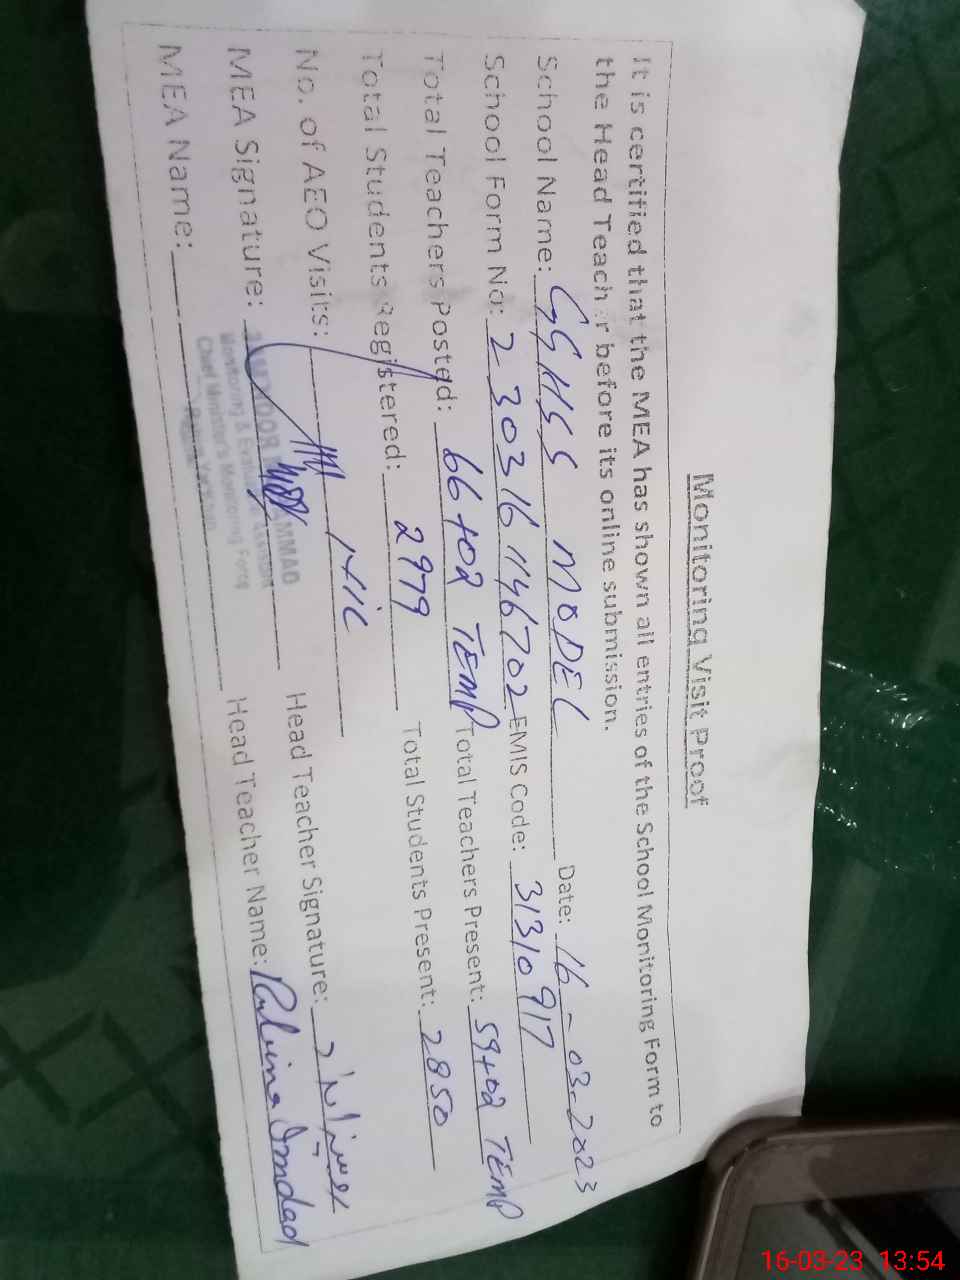 Monitoring Visit Proof
It is certified that the MEA has shown all entries of the School Monitoring Form to
the Head Teacher before its online submission.
School Name: GGHSS MODEL Date: 16-03-2023
School Form No: 2303161146702 EMIS Code: 31310917
Total Teachers Posted: 66+02 TEMP Total Teachers Present: 59+02 TEMP
Total Students Registered: 2979 Total Students Present: 2850
No. of AEO Visits: NIC
MEA Signature: Head Teacher Signature:
MEA Name: Head Teacher Name: Rubina Imdad
Monitoring & Evaluation Assistant
Chief Minister's Monitoring Force
16-03-23 13:54